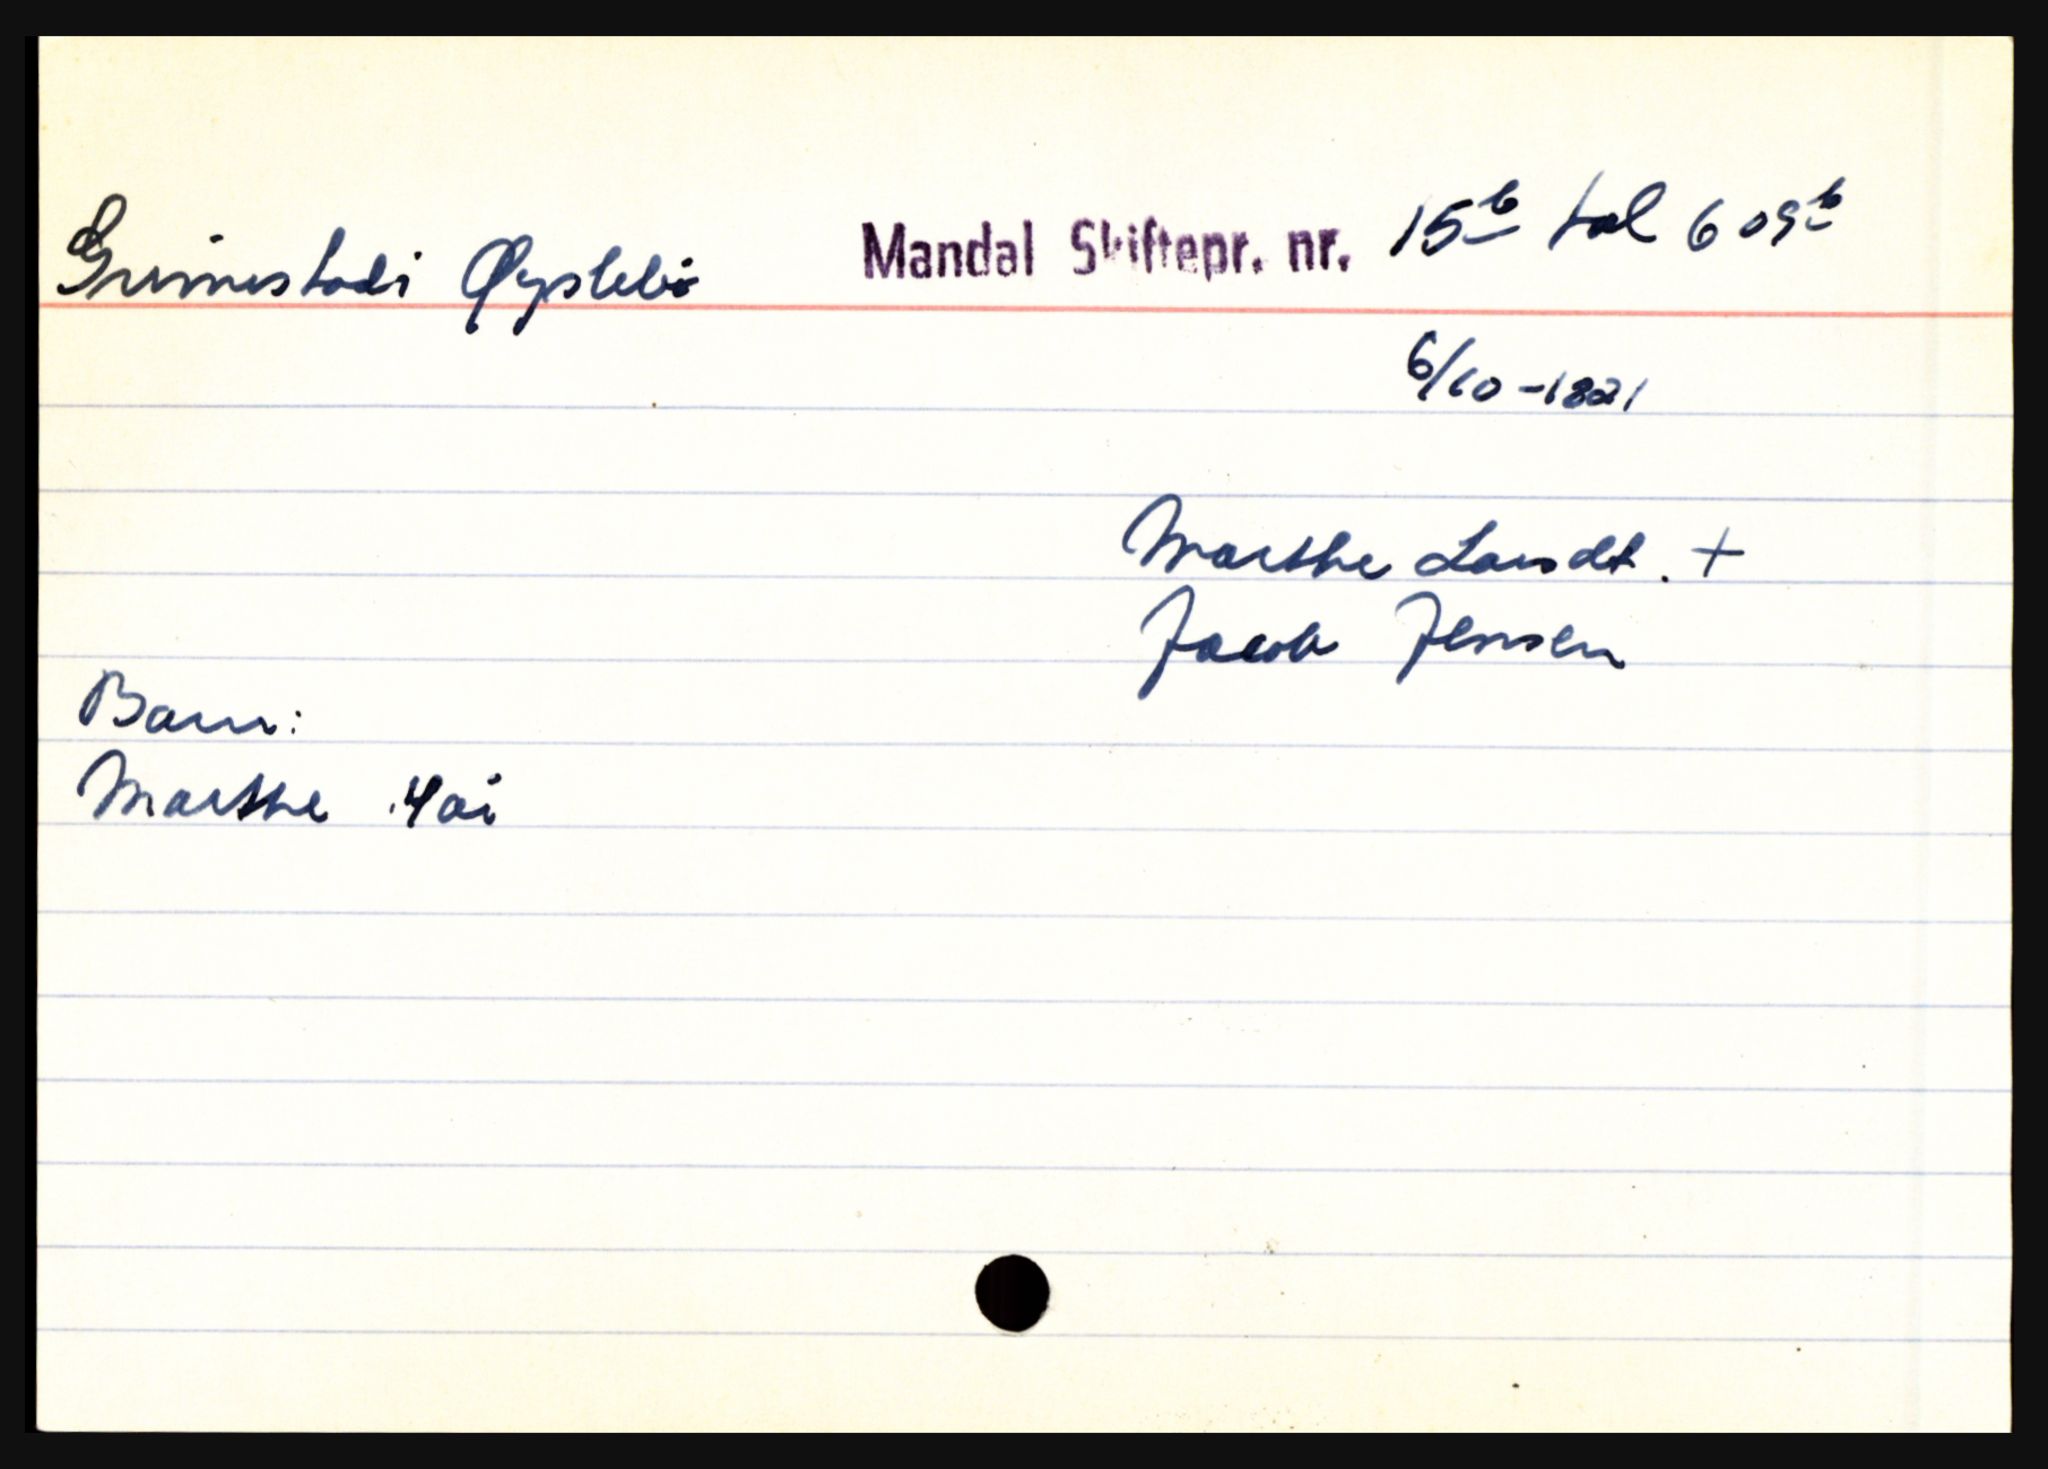 Grimestadi Øyslebö Mandal Skiftepr. nr. 15b fol 609b
6/10-1821
Marthe Landt. +
Jacob Jensen
Barn:
Marthe 4 år